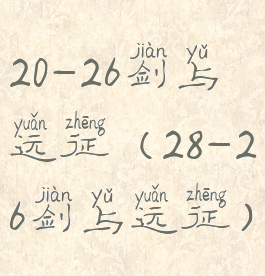 jiàn yǔ
20-26剑与
yuǎn zhēng
远征（28-2
jiàn yǔ yuǎn zhēng
6剑与远征）